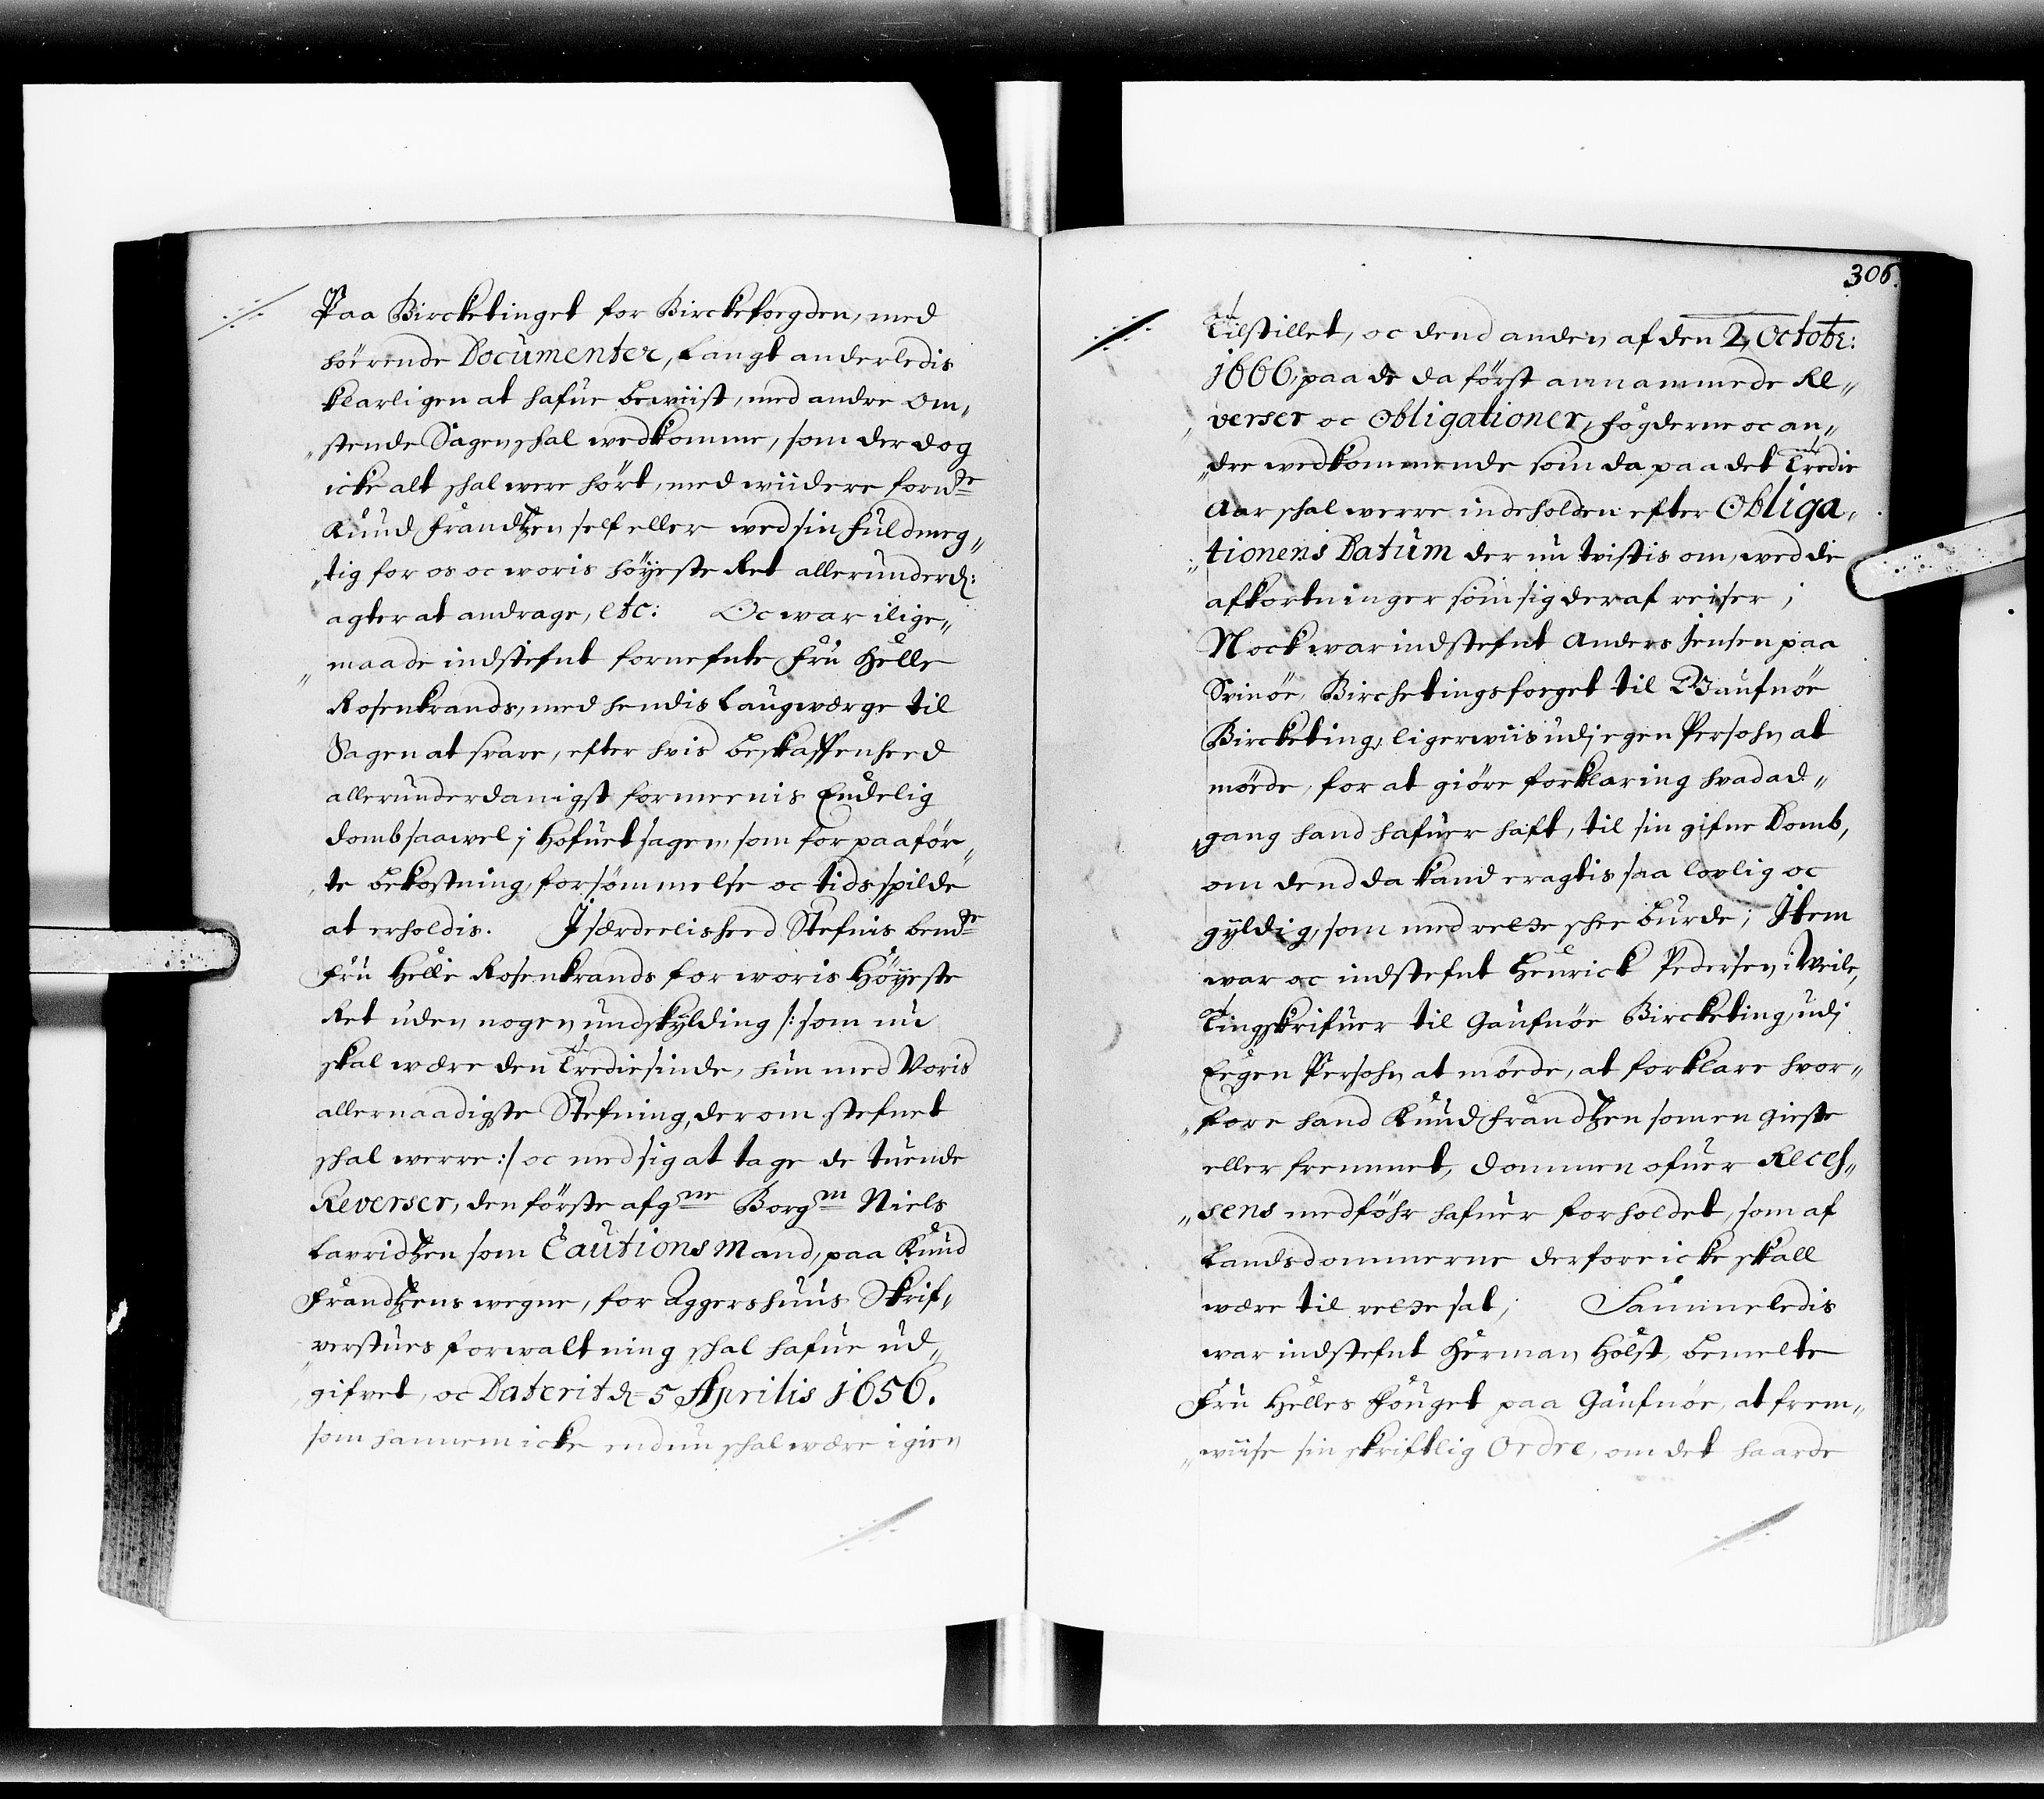 Paa Bircketinget for Birckefoegden, med
hörende Documenter, langt anderledis
klarligen at hafue bewiist, med andre om„
„stende Sagen schal wedkomme, som der dog
icke alt schal were hört, med wiidere fornde
Knud Frandtzen self eller wed sin fuldmeg„
„tig for os oc woris höyeste Ret allerunderd:
agter at andrage, etc: Oc war ilige„
„maade indstefnt fornefnte Fru Helle
Rosenkrands, med hendis Laugwerge til
Sagen at svare, efter hvis beskaffenheed
allerunderdanigst formeenis Endelig
domb saawel j Hofuetsagen, som for paaför„
„te bekostning, forsömmelse oc tidsspilde
at erholdis. J særdeelisheed Stefnis bemte
Fru Helle Rosenkrands for woris Höyeste
Ret uden nogen undskylding /: som nu
skal wære den Tredie sinde, hun med Voris
allernaadigste Stefning, derom stefnet
schal werre :/ oc med sig at tage de tuende
Reverser, den förste afgne Borgm Niels
Lavridtzen som Cautions Mand, paa Knud
Frandtzens wegne, for Aggershuus Skrif„
„verstues forwaltning schal hafue ud„
„gifvet, oc Daterit d= 5 Aprilis 1656.
som hannem icke endnu schal wære igien
306.
Tilstillet, oc dend anden af den 2, Octobr:
1666, paa de da först annammede Re„
„verser oc Obligationer, fogderne oc an„
„dre wedkommende som da paa det Tredie
Aar schal werre indeholden efter Obliga„
„tionens Datum der nu tvistis om, wed die
afkortninger som sig deraf reiser;
Nock war indstefnt Anders Jensen paa
Svinöe, Birchetingsfoeget til Gaufnöe
Bircketing, ligerwiis udj egen Persohn at
möede, for at giöre forklaring hvad ad„
„gang hand hafuer haft, til sin gifne Domb,
om dend da kand eragtis saa lovlig oc
gyldig, som med rette schee burde; Item
war oc indstefnt Henrick Pedersen i Weile,
Tingskrifuer til Gaufnöe Bircketing, udj
Eegen Persohn at möede, at forklare hvor„
„fore hand Knud Frandtzen som en gieste
eller fremmet, dommen ofuer Reces„
„sens medföhr hafuer forholdet, som af
Landsdommerne derfore icke skall
wære til rette sat; Sammeledis
war indstefnt Herman Holst, bemelte
Fru Helles Fouget paa Gaufnöe, at frem„
„wiise sin skriftlig Ordre, om det haarde